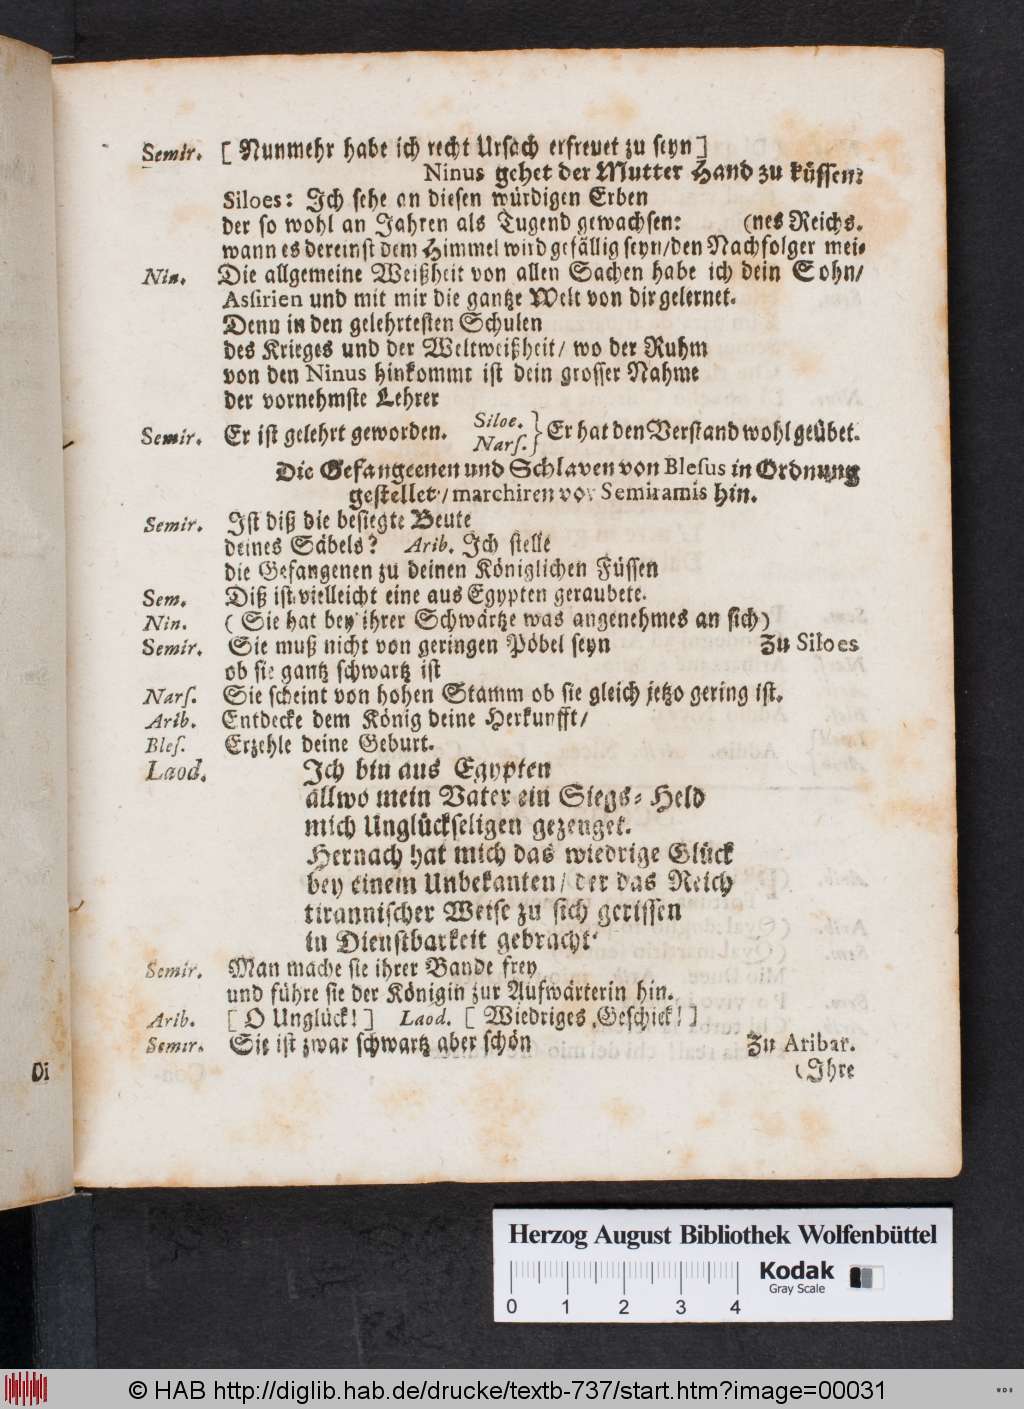 Semir. [ Nunmehr habe ich recht Ursach erfreuet zu seyn ]
Ninus gehet der Mutter Hand zu küssen:
Siloes: Ich sehe an diesen würdigen Erben
der so wohl an Jahren als Tugend gewachsen: (nes Reichs.
wann es dereinst dem Himmel wird gefällig seyn/den Nachfolger mei-
Nin. Die allgemeine Weißheit von allen Sachen habe ich dein Sohn/
Assirien und mit mir die gantze Welt von dir gelernet.
Denn in den gelehrtesten Schulen
des Krieges und der Weltweißheit/ wo der Ruhm
von den Ninus hinkommt ist dein grosser Nahme
der vornehmste Lehrer
Semir. Er ist gelehrt geworden. Siloe. Nars. } Er hat den Verstand wohl geübet.
Die Gefangeenen und Schlaven von Blesus in Ordnung
gestellet/ marchiren vor Semiramis hin.
Semir. Ist diß die besiegte Beute
deines Säbels? Arib. Ich stelle
die Gefangenen zu deinen Königlichen Füssen
Sem. Diß ist vielleicht eine aus Egypten geraubete.
Nin. ( Sie hat bey ihrer Schwärtze was angenehmes an sich)
Semir. Sie muß nicht von geringen Pöbel seyn Zu Siloes
ob sie gantz schwartz ist
Nars. Sie scheint von hohen Stamm ob sie gleich jetzo gering ist.
Arib. Entdecke dem König deine Herkunfft/
Bles. Erzehle deine Geburt.
Laod. Ich bin aus Egypten
allwo mein Vater ein Siegs-Held
mich Unglückseligen gezenget.
Hernach hat mich das wiedrige Glück
bey einem Unbekanten/ der das Reich
tirannischer Weise zu sich gerissen
in Dienstbarkeit gebracht.
Semir. Man mache sie ihrer Bande frey
und führe sie der Königin zur Aufwärterin hin.
Arib. [ O Unglück! ] Laod. [ Wiedriges Geschick! ]
Semir. Sie ist zwar schwartz aber schön Zu Aribar.
(Ihre
Di
Herzog August Bibliothek Wolfenbüttel
Kodak
Gray Scale
0 1 2 3 4
© HAB http://diglib.hab.de/drucke/textb-737/start.htm?image=00031